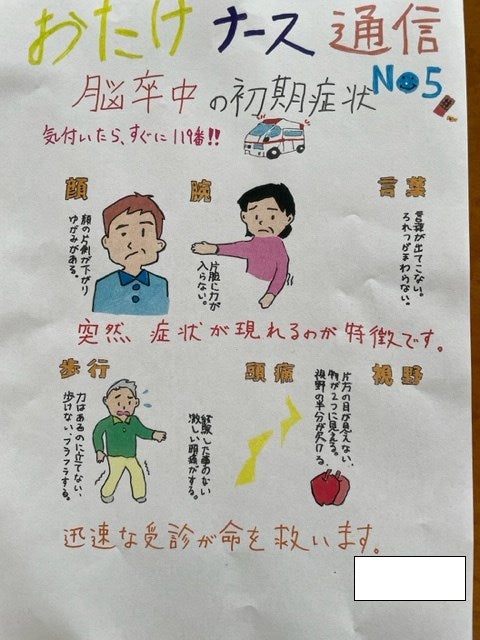 おたけナース通信
No5
脳卒中の初期症状
気付いたら、すぐに119番!!
顔
顔の片側が下がり
ゆがみがある。
腕
片腕に力が
入らない。
言葉
言葉が出てこない。
ろれつがまわらない。
突然 症状が現れるのが特徴です。
歩行
力はあるのに立てない、
歩けない、フラフラする。
頭痛
経験した事のない
激しい頭痛がする。
視野
片方の目が見えない、
物が2つに見える。
視野の半分が欠ける。
迅速な受診が命を救います。